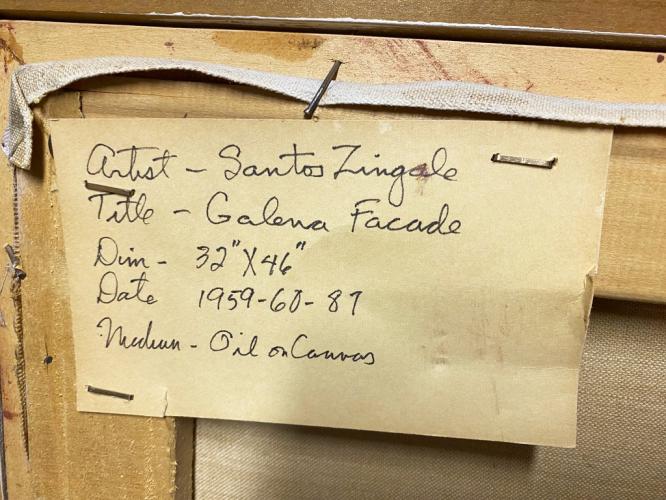 Artist - Santos Zingale
Title - Galena Facade
Dim - 32" X 46"
Date 1959-60-87
Medium - Oil on Canvas